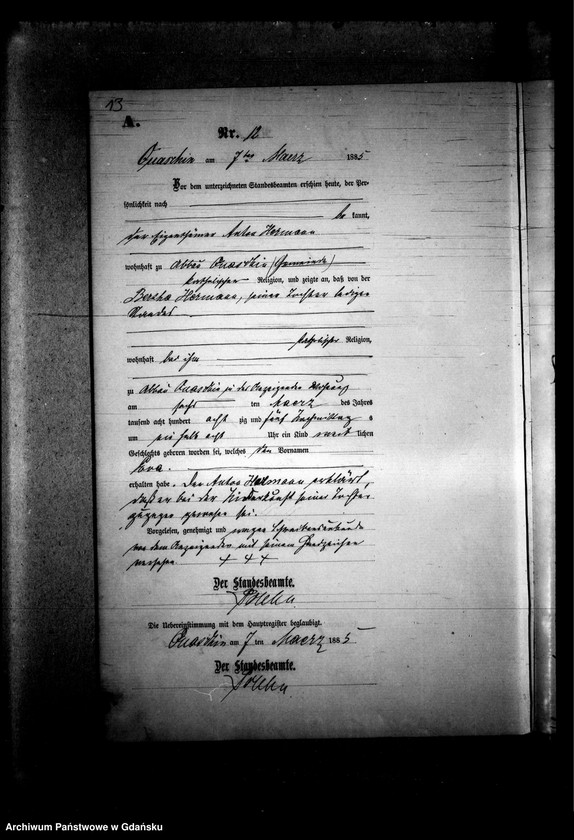 13
A.
Nr. 12
Quaschin am 7ten Maerz 1885
Vor dem unterzeichneten Standesbeamten erschien heute, der Per-
sönlichkeit nach
be kannt,
der Eigenthümer Anton Hermann
wohnhaft zu Abbau Quaschin (Gemeinde)
katholischer Religion, und zeigte an, daß von der
Bertha Hermann, seiner Tochter ledigen
Standes
katholischer Religion,
wohnhaft bei ihm
zu Abbau Quaschin in des Anzeigenden Wohnung
am sechs ten Maerz des Jahres
tausend acht hundert acht zig und fünf Nachmittag s
um ein halb acht Uhr ein Kind weib lichen
Geschlechts geboren worden sei, welches den Vornamen
erhalten habe. Der Anton Hermann erklärt,
daß er bei der Niederkunft seiner Tochter
zugegen gewesen sei.
Vorgelesen, genehmigt und wegen Schreibensunkunde
von dem Anzeigenden mit seinem Handzeichen
versehen + + +
Der Standesbeamte.
Die Uebereinstimmung mit dem Hauptregister beglaubigt.
Quaschin am 7 ten Maerz 1885
Der Standesbeamte.
Archiwum Państwowe w Gdańsku